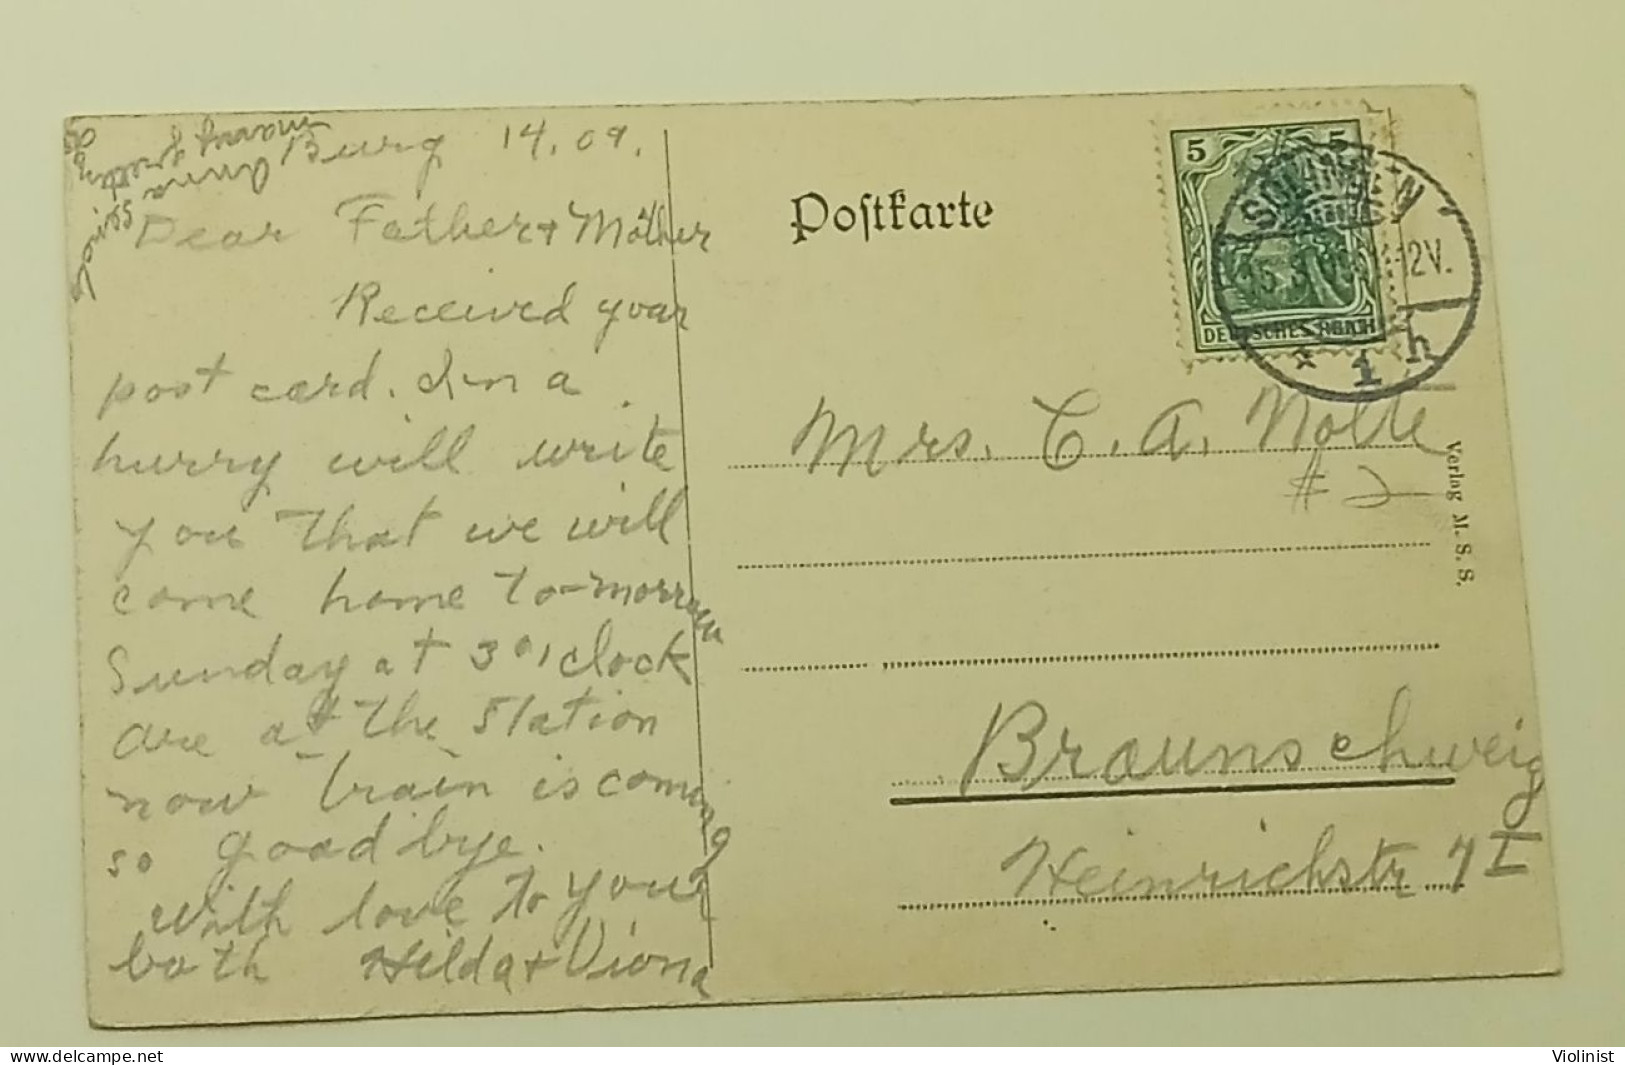 Burg 14.09.
Dear Father + Mother
Received your
post card. Im a
hurry will write
you that we will
come home to-morrow
Sunday at 3 o'clock
are at the station
now train is coming
so good bye.
with love to you
both Hilda + Viona
Anna
Postkarte
5 5
DEUTSCHES REICH
SOLINGEN
15.3.09. 11-12V.
* 1 h
Mrs. C. A. Nolte
# 2
Braunschweig
Heinrichstr 7 I
Verlag M. S. S.
delcampe.net
Violinist